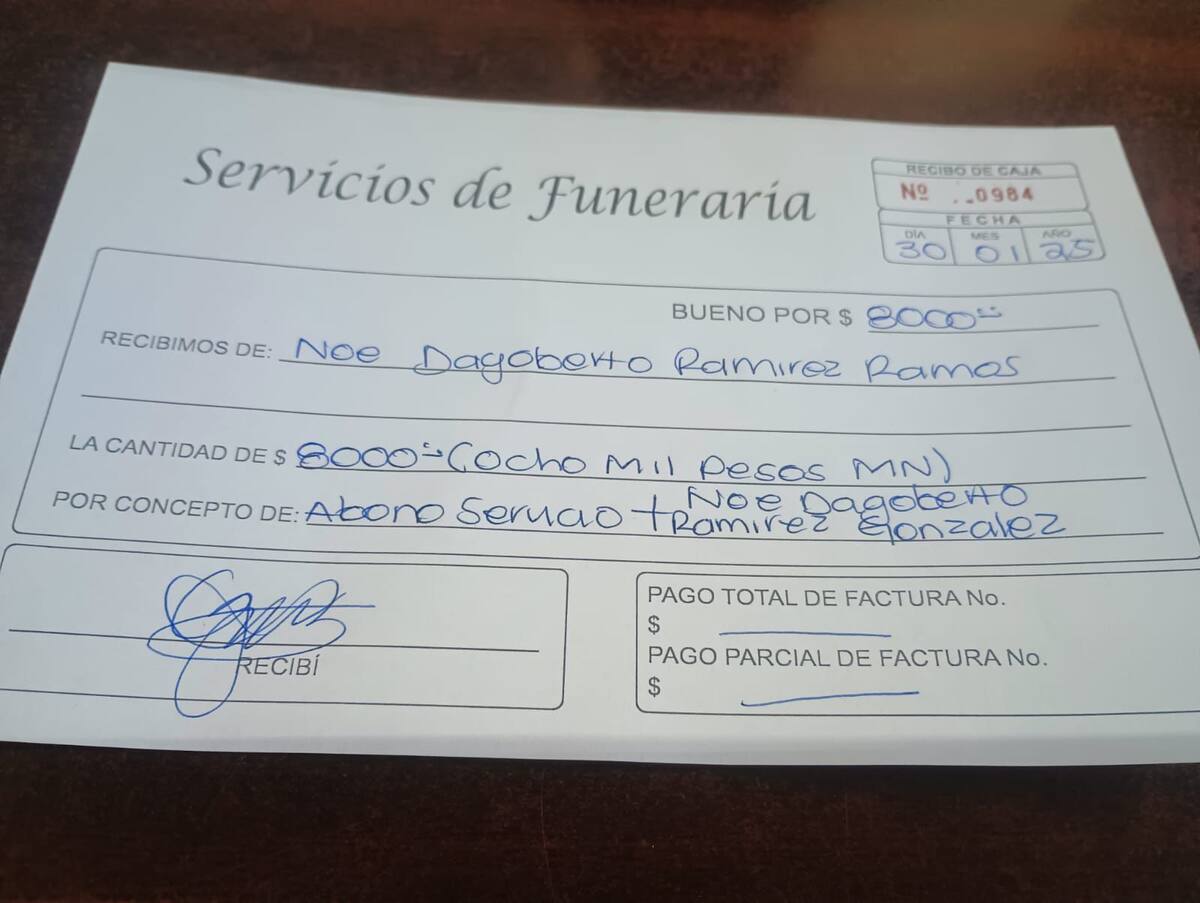 Servicios de Funeraria
RECIBO DE CAJA
Nº ..0984
FECHA
DÍA MES AÑO
30 01 25
BUENO POR $ 8000
RECIBIMOS DE: Noe Dagoberto Ramirez Ramos
LA CANTIDAD DE $ 8000 (ocho Mil pesos MN)
Noe Dagoberto
POR CONCEPTO DE: Abono Servicio + Ramirez Gonzalez
RECIBÍ
PAGO TOTAL DE FACTURA No.
$
PAGO PARCIAL DE FACTURA No.
$